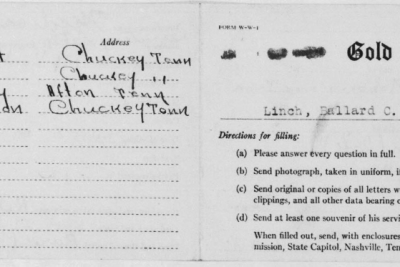 Address
Chuckey Tenn
Chuckey "
Afton Tenn
Chuckey Tenn
FORM W-W-1
Gold
Linch, Ballard C.
Directions for filling:
(a) Please answer every question in full.
(b) Send photograph, taken in uniform, i
(c) Send original or copies of all letters w
clippings, and all other data bearing o
(d) Send at least one souvenir of his servi
When filled out, send, with enclosures
mission, State Capitol, Nashville, Ten